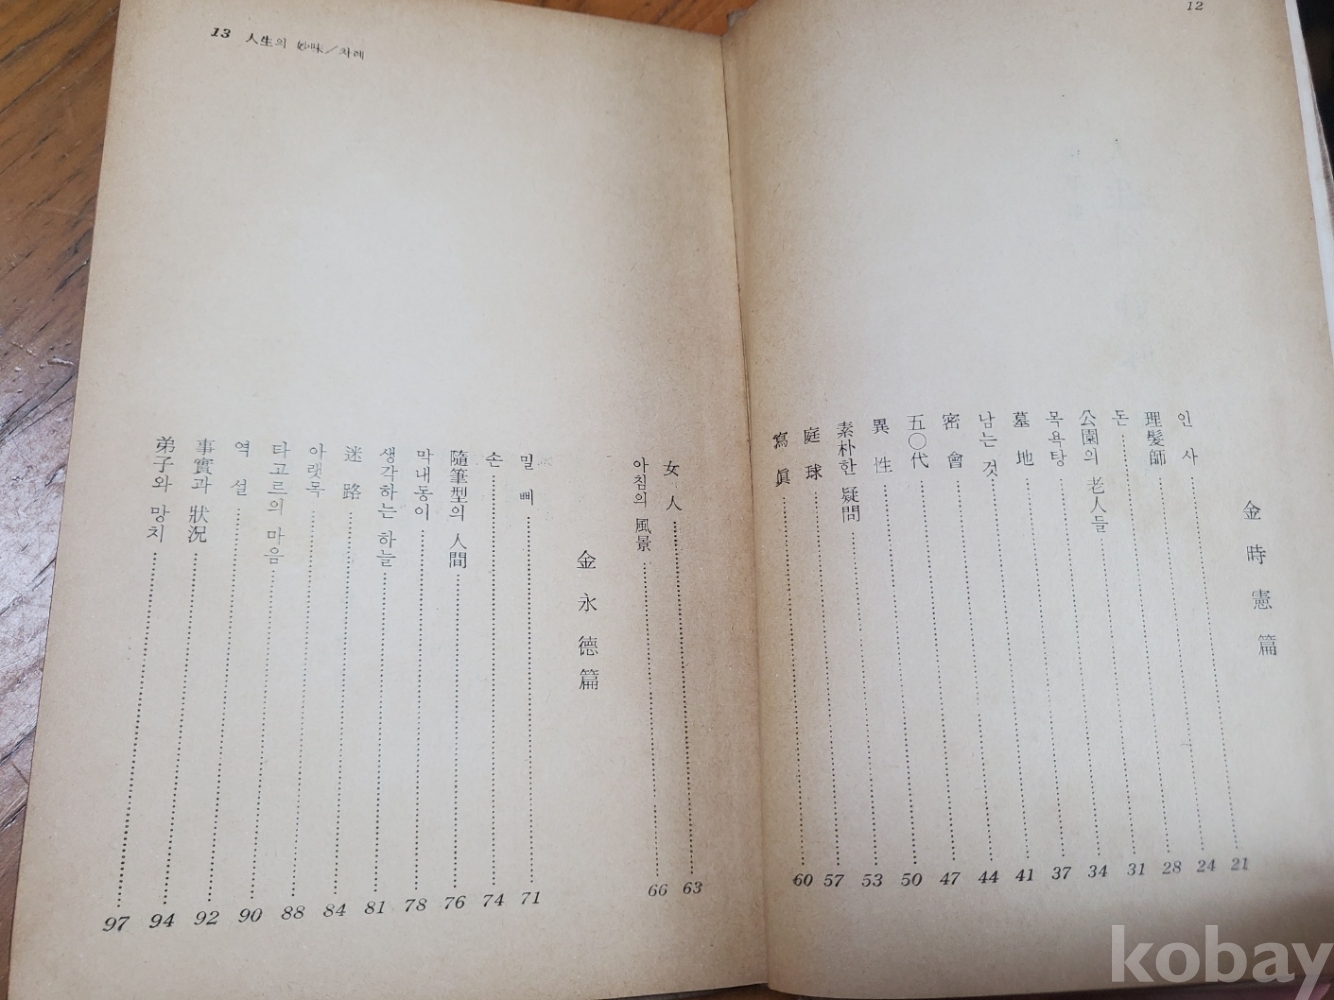 12
金時憲篇
인사 21
理髮師 24
돈 28
公園의 老人들 31
목욕탕 34
墓地 37
남는 것 41
密會 44
五〇代 47
異性 50
素朴한 疑問 53
庭球 57
寫眞 60
13 人生의 妙味／차례
女人 63
아침의 風景 66
金永德篇
밀삐 71
손 74
隨筆型의 人間 76
막내동이 78
생각하는 하늘 81
迷路 84
아랫목 88
타고르의 마음 90
역설 92
事實과 狀況 94
弟子와 망치 97
kobay